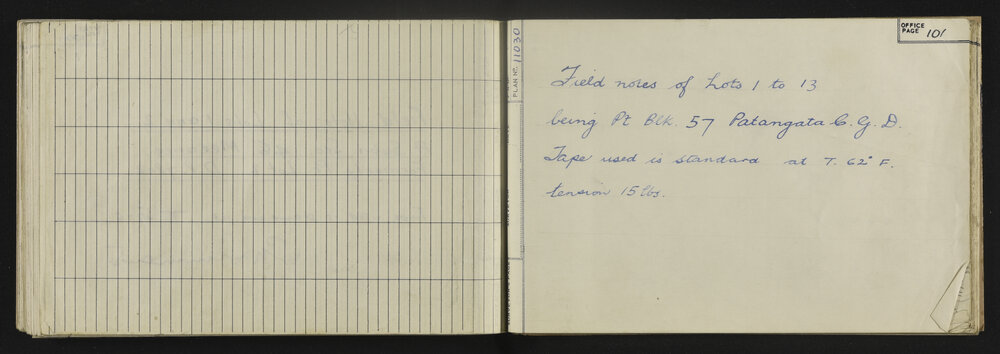 OFFICE
PAGE 101
PLAN Nº. 11030
Field notes of Lots 1 to 13
being Pt Blk. 57 Patangata C.G.D.
Tape used is standard at T. 62° F.
tension 15 lbs.